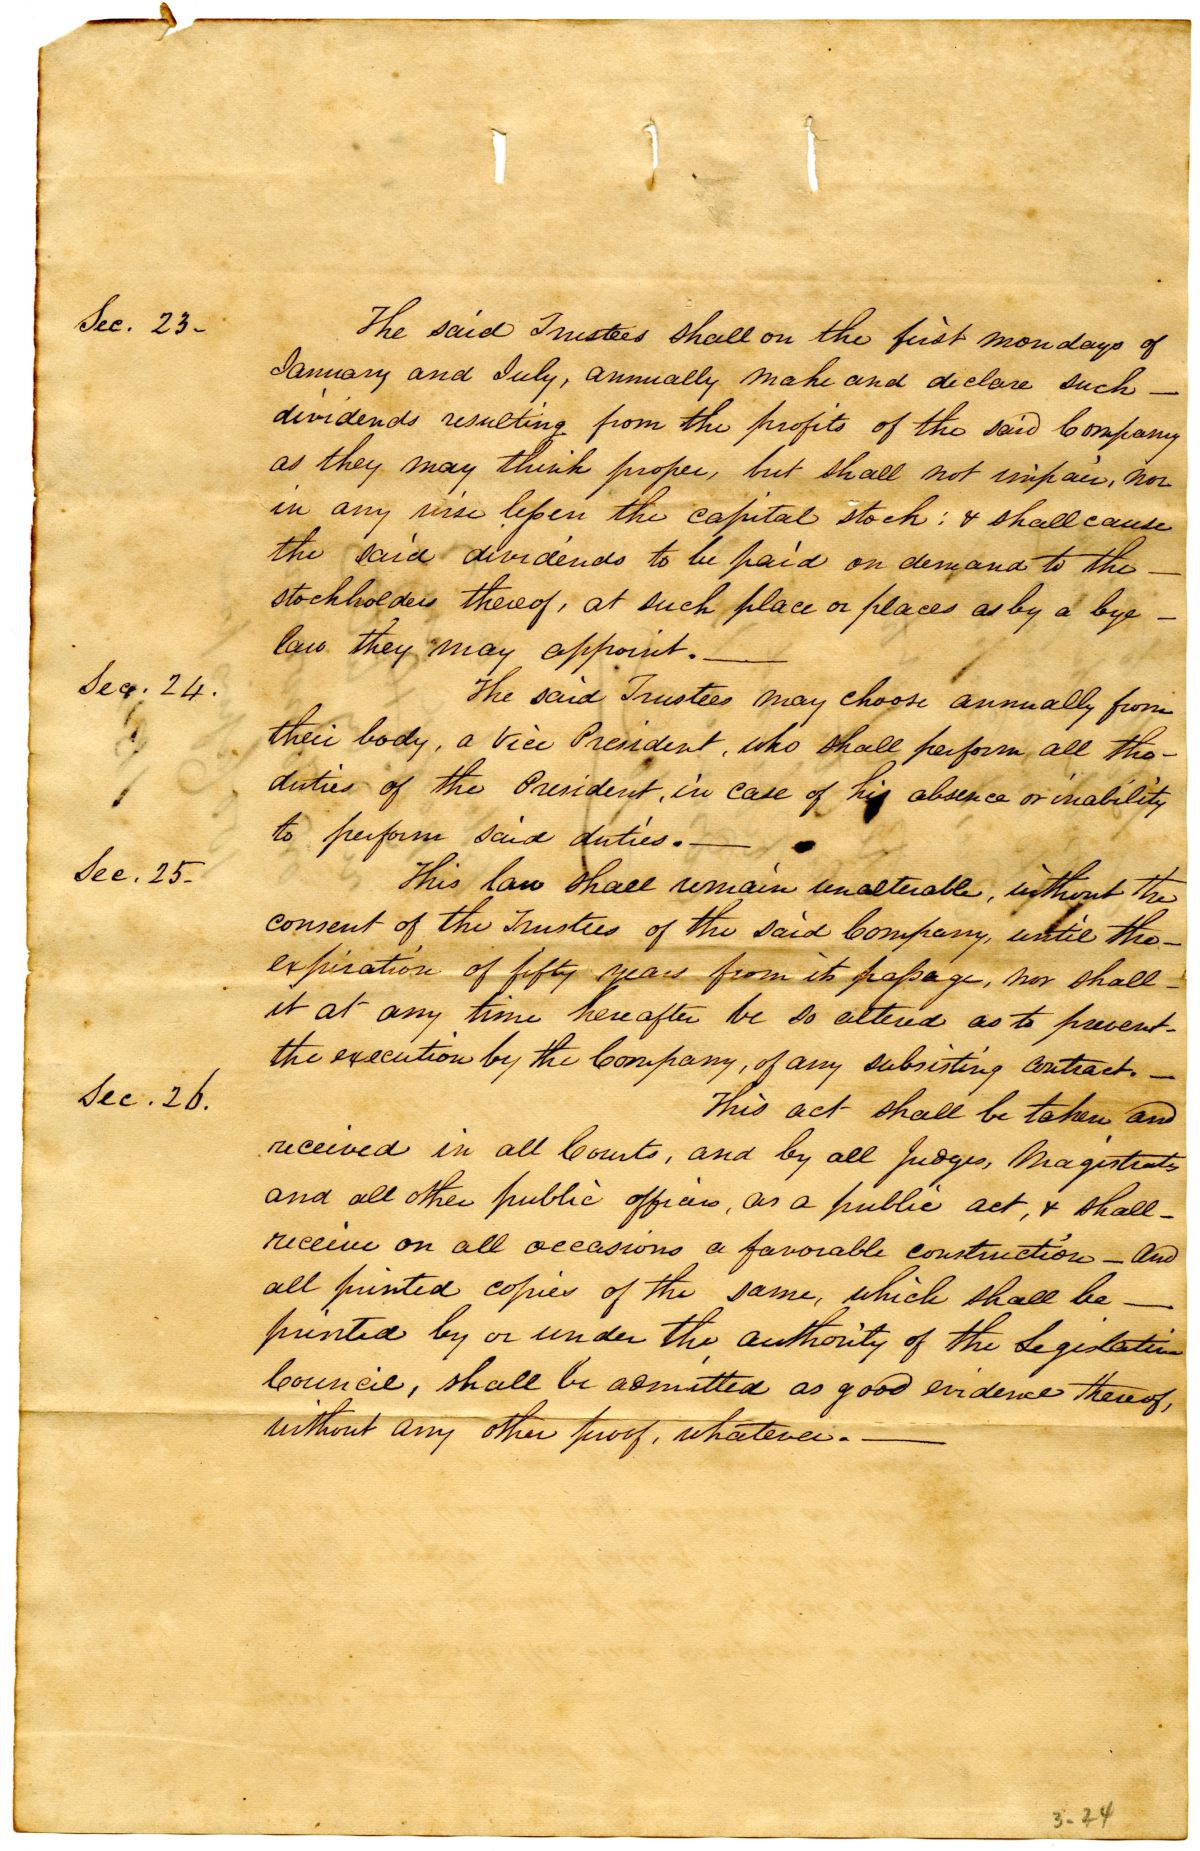 Sec. 23- The said Trustees shall on the first mondays of
January and July, annually make and declare such —
dividends resulting from the profits of the said Company
as they may think proper, but shall not impair, nor
in any wise lessen the capital stock: & shall cause
the said dividends to be paid on demand to the —
stockholders thereof, at such place or places as by a bye -
law they may appoint. —
Sec. 24. The said Trustees may choose annually from
their body, a Vice President, who shall perform all the-
duties of the President, in case of his absence or inability
to perform said duties. —
Sec. 25- This law shall remain unalterable, without the
consent of the Trustees of the said Company, until the-
expiration of fifty years from its passage, nor shall -
it at any time hereafter be so altered as to prevent-
the execution by the Company, of any subsisting contract. —
Sec. 26. This act shall be taken and
received in all Courts, and by all Judges, Magistrates
and all other public officers, as a public act, & shall -
receive on all occasions a favorable construction — and
all printed copies of the same, which shall be —
printed by or under the authority of the Legislative
Council, shall be admitted as good evidence thereof,
without any other proof, whatever. —
3-24